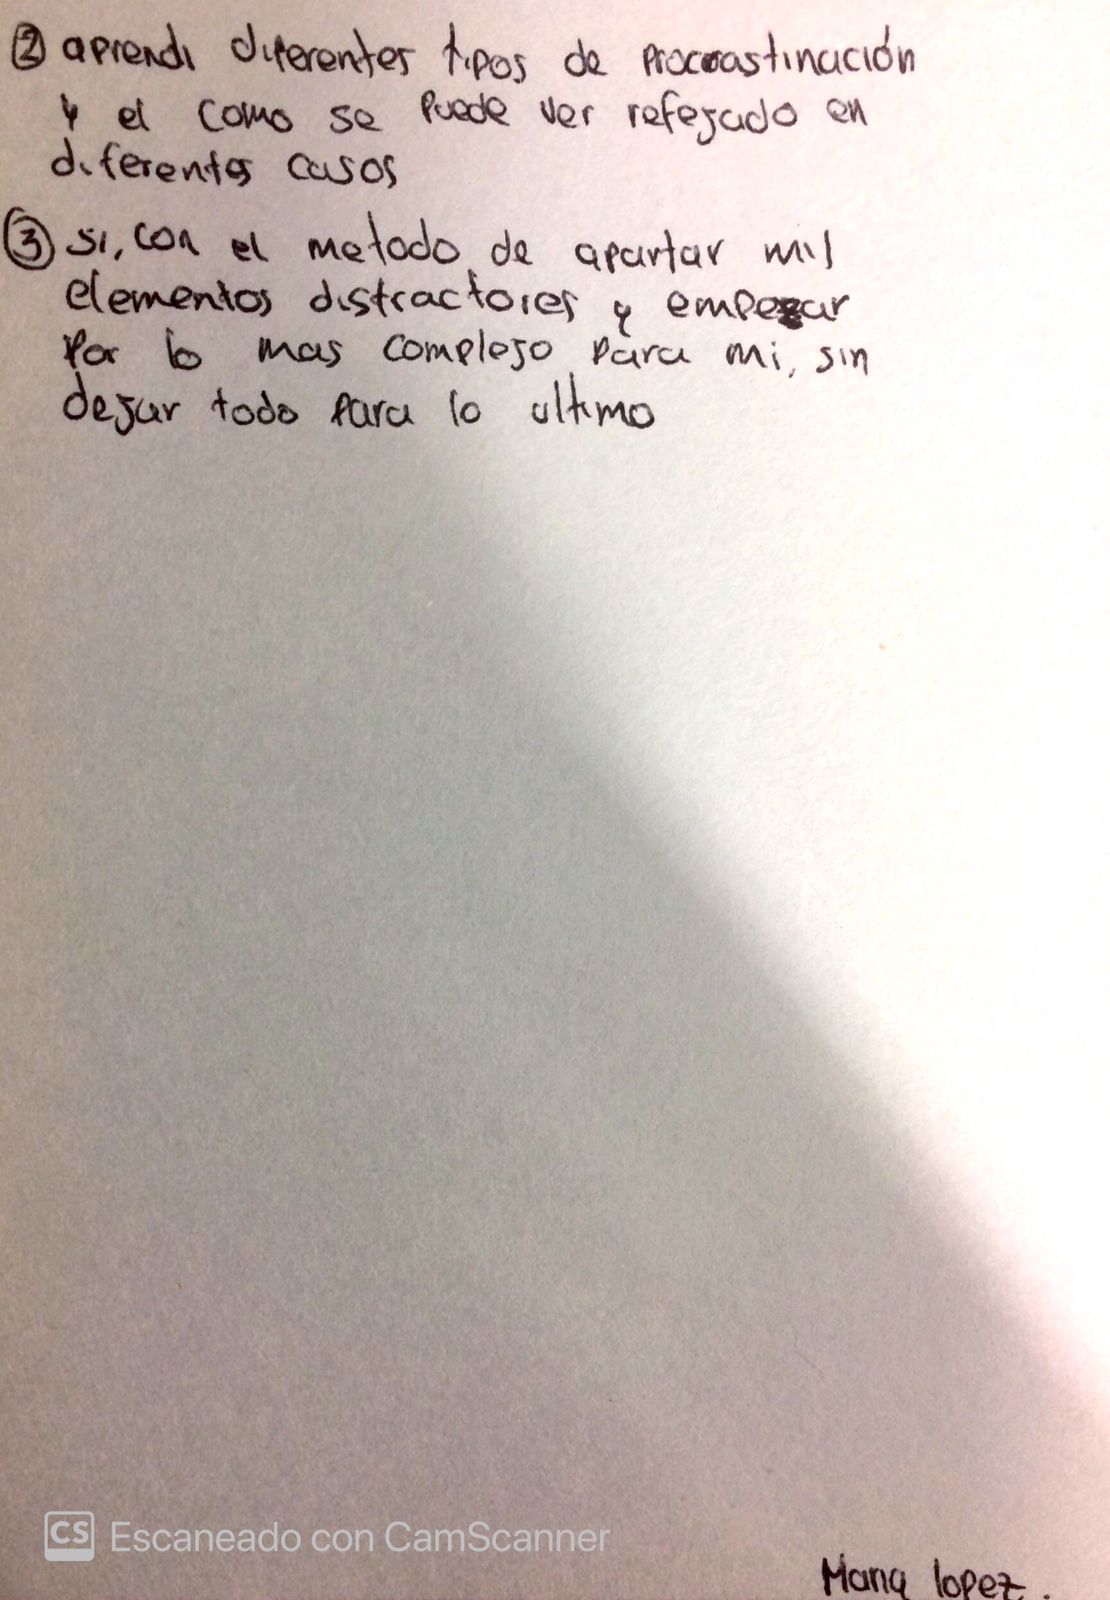 ② aprendi diferentes tipos de procrastinación
y el como se puede ver refejado en
diferentes casos
③ si, con el metodo de apartar mis
elementos distractores y empezar
por lo mas complejo para mi, sin
dejar todo para lo ultimo
CS Escaneado con CamScanner
Maria lopez.